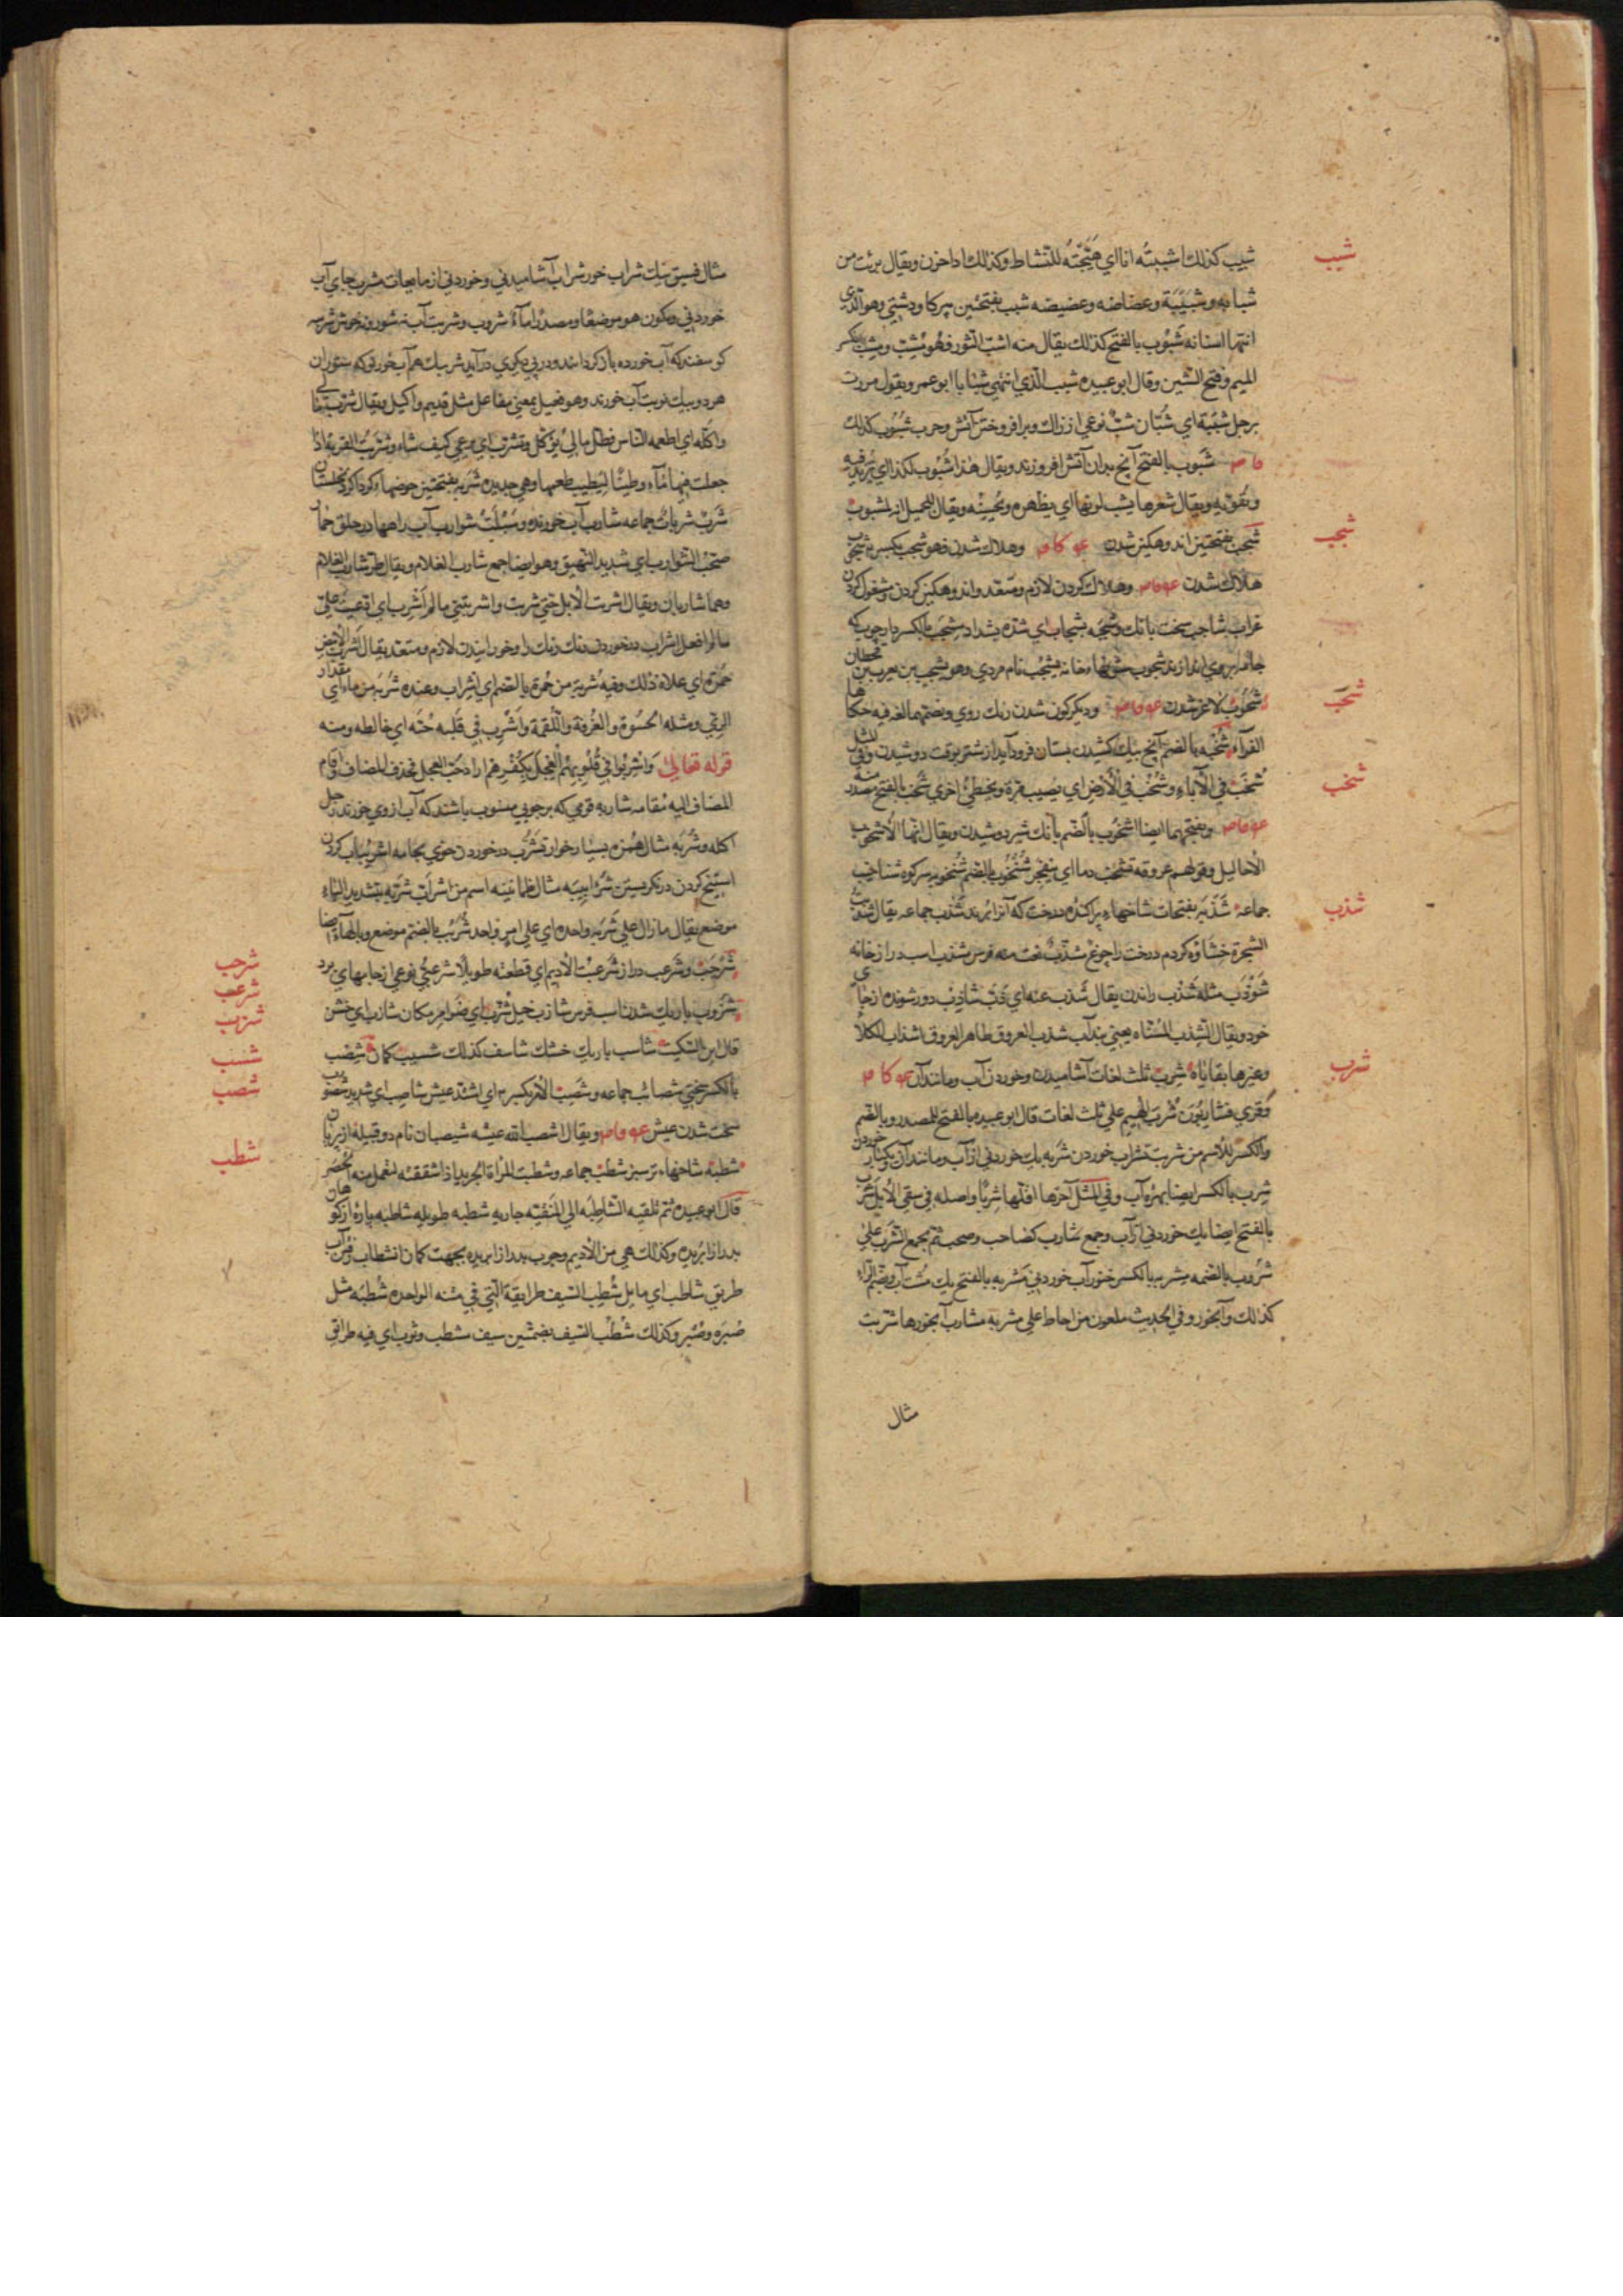 شبب
شبيب كذلك اشببتُه انا اي هَيَّجْتَهُ للنشاط وكذلك اذا حزن ويقال برئت من
شبابه وشَبيبَة وعضاضه وعضيضه شبب بفتحتين پير كاو دشتي وهو الذي
انتها اسنانه شَبُوب بالفتح كذلك يقال منه اشبّ الثور فهو مُشِبّ ومِشَبّ بكسر
الميم وفتح الشين وقال ابو عبيده شبب الذي انتهي شبابا ابو عمر ويقول مررت
برجل شَبَبَة اي شُبّان شبّ نوعي از زاك وبر افروختن آتش وحرب شُبُوب كذلك
شَبوب بالفتح آنچ بدان آتش افروزند ويقال هذا شُبُوب لكذا اي يزيد فيه
ويُقوّيه ويقال شعرها يشب لونها اي يظهره ويُحسِنُه ويقال للجميل انه لمشبوب
شجب
شَجَب بفتحتين اندوهكين شدن وهلاك شدن فهو شجب بكسر
هلاك شدن وهلاك كردن لازم ومتعد واندوهكين كردن ومشغول كردن
غراب شاجب سخت بانك وشجبه بشجاب اي شدّه بشداد مِشجب بالكسر دار چوب كه
جامه بر وي اندازند شجوب ستونهاء خانه يَشجُب نام مردي وهو يشجب بن يعرب بن قحطان
شحب
شُحُوب لاغر شدن وديكركون شدن رنك روي وبضمهما لغة فيه حكاها
شخب
الفرّاء شُخْبه بالضم آنچ بيك كشيدن پستان فرود آيد از شير بوقت دوشيدن وفي المثل
شُخب في الاناء وشُخب في الأرض اي يُصيب مرّة ويُخطئ اخري شَخب بالفتح مصدر منه
وبفتحهما ايضا اشخُوب بالضم بانك شير دوشيدن ويقال انها لأشخوب
الاحاليل وقولهم عروقه تشخب دما اي ينفجر شُنخُوب بالضم شُنخوبه سر كوه شناخيب
شذب
جماعة شَذَبه بفتحات شاخهاء پراكنده درخت كه آنرا برند شَذب جماعه يقال شذبت
الشجرة خِشَاوه كردم درخت را چوغ مشذّب نعت منه فرس مشذب اسب دراز خانه
شَوْذَب مثله شَذْب راندن يقال شَذب عنه اي ذَبّ شاذب دور شونده از جاي
خود ويقال الشذب المُسَنّاه يعني بند آب شذب العروق ظاهر العروق اشذاب الكلأ
شرب
وغيرها بقاياه شرب ثلث لغات آشاميدن وخوردن آب ومانند آن
وقري فشاربُونَ شُربَ الهيم علي ثلث لغات قال ابو عبيده بالفتح للمصدر وبالضم
والكسر للاسم من شربت تشراب خوردن شَربه يك خوردني از آب ومانند آن يكبار خوردن
شِرب بالكسر ايضا بهرهٔ آب وفي المثل آخرها اقلّها شِربًا واصله في سقي الأبل شَرب
بالفتح ايضا يك خوردني از آب وجمع شارب كصاحب وصحب ثم يجمع الشرب علي
شُروب بالضمه مِشربه بالكسر خنور آب خوردني مَشربه بالفتح يك مُشت آب وبضم الراء
كذلك وآبخور وفي الحديث ملعون من احاط علي مشربه مشارب آبخورها شربت
مثال
مثال فسيق نيك شراب خور شراب آشاميدني وخوردني از مايعات مشرب جاي آب
خوردني ويكون هو موضعًا ومصدرًا ماءٌ شروب وشريب آب نه شور ونه خوش شربه
كوسفند كه آب خورده باز كردانند ودر پي ديكري در آيد شريبك هم آب خور تو كه ستوران
هر دو بيك نوبت آب خورند وهو فعيل بمعني مفاعل مثل قديم واكيل ويقال شرّب مالي
واكّله اي اطعمه الناس فظل مالي يؤكّل ويُشرّب اي يرعي كيف شاء وشرّبت القربه اذا
جعلت فيها ماءً وطينًا ليُطيب طعمها وهي جديده شَرَبه بفتحتين حوضهاء كرداكرد نخلستان
شَرَب شربات جماعه شارب آب خورنده وسَبَلَت شوارب آب راهها در حلق حمار
صخب الشوارب اي شديد النهيق وهو ايضا جمع شارب الغلام ويقال طرّ شارب الغلام
وهما شاربان ويقال اشربت الأبل حتي شربت واشربتني ما لم اَشرب اي ادّعيت عليّ
ما لم افعل اشراب در خوردن ونك رنك را وخورانيدن لازم ومتعد يقال اُشرب الأبيض
حُمرةً اي علاه ذلك وفيه شُربة من حُمرة بالضم اي اشراب وعنده شَربَة من ماء اي مقدار
الرّي ومثله الحُسوة والغُرفة واللُقمة واُشرب في قلبه حُبّه اي خالطه ومنه
قوله تعالي وَاُشرِبُوا في قُلُوبِهِم العِجلَ بِكُفرِهِم اراد حُبّ العجل فحذف المضاف واقام
المضاف اليه مُقامه شاربه قومي كه بر جوئي منسوب باشند كه آب از وي خورند رجل
اكله وشُرَبه مثال هُمَزه بسيار خوار تشرّب در خوردن خوي بجامه اشريباب كردن
موضع يقال مازال علي شَرَبه واحده اي علي امر واحد شُربُب بالضم موضع وبالهاء ايضا
شرجب
شرعب
شَرجَب وشَرعب دراز شرعبت الأديم اي قطعته طويلًا شرعبيّ نوعي از جامهاي برد
شزب
شُزُوب باريك شدن اسب فرس شازب خيل شُزّب اي ضوامر مكان شازب اي خشن
شسب
قال ابن السكيت شاسب باريك خشك شاسف كذلك شسيب كمان
شصب
بالكسر سختي شصائب جماعه وشَصِبَ الأمر بكسر اي اشتدّ عيش شاصب اي شديد شصوب
سخت شدن عيش ويقال اشصب الله عيشه شيصبان نام دو قبيله از پريان
شطب
شطبه شاخهاء تر سبز شَطب جماعه وشطبت المرأة الجريد اذا شقّقته لتعمل منه الحُصر
قال ابو عبيده ثم تلقيه الشاطبه الي المنقّيه جاريه شطبه طويله شاطبه پارهٔ از كوهان
بدرازا بُريده وكذلك هي من الأديم وچوب بدرازا بريده بجهت كمان انشطاب رفتن آب
طريق شاطب اي مايل شُطب السيف طرايقه التي في متنه الواحده شُطبه مثل
صُبرَه وصُبَر وكذلك شُطُب السيف بضمتين سيف مشطب وثوب اي فيه طرائق